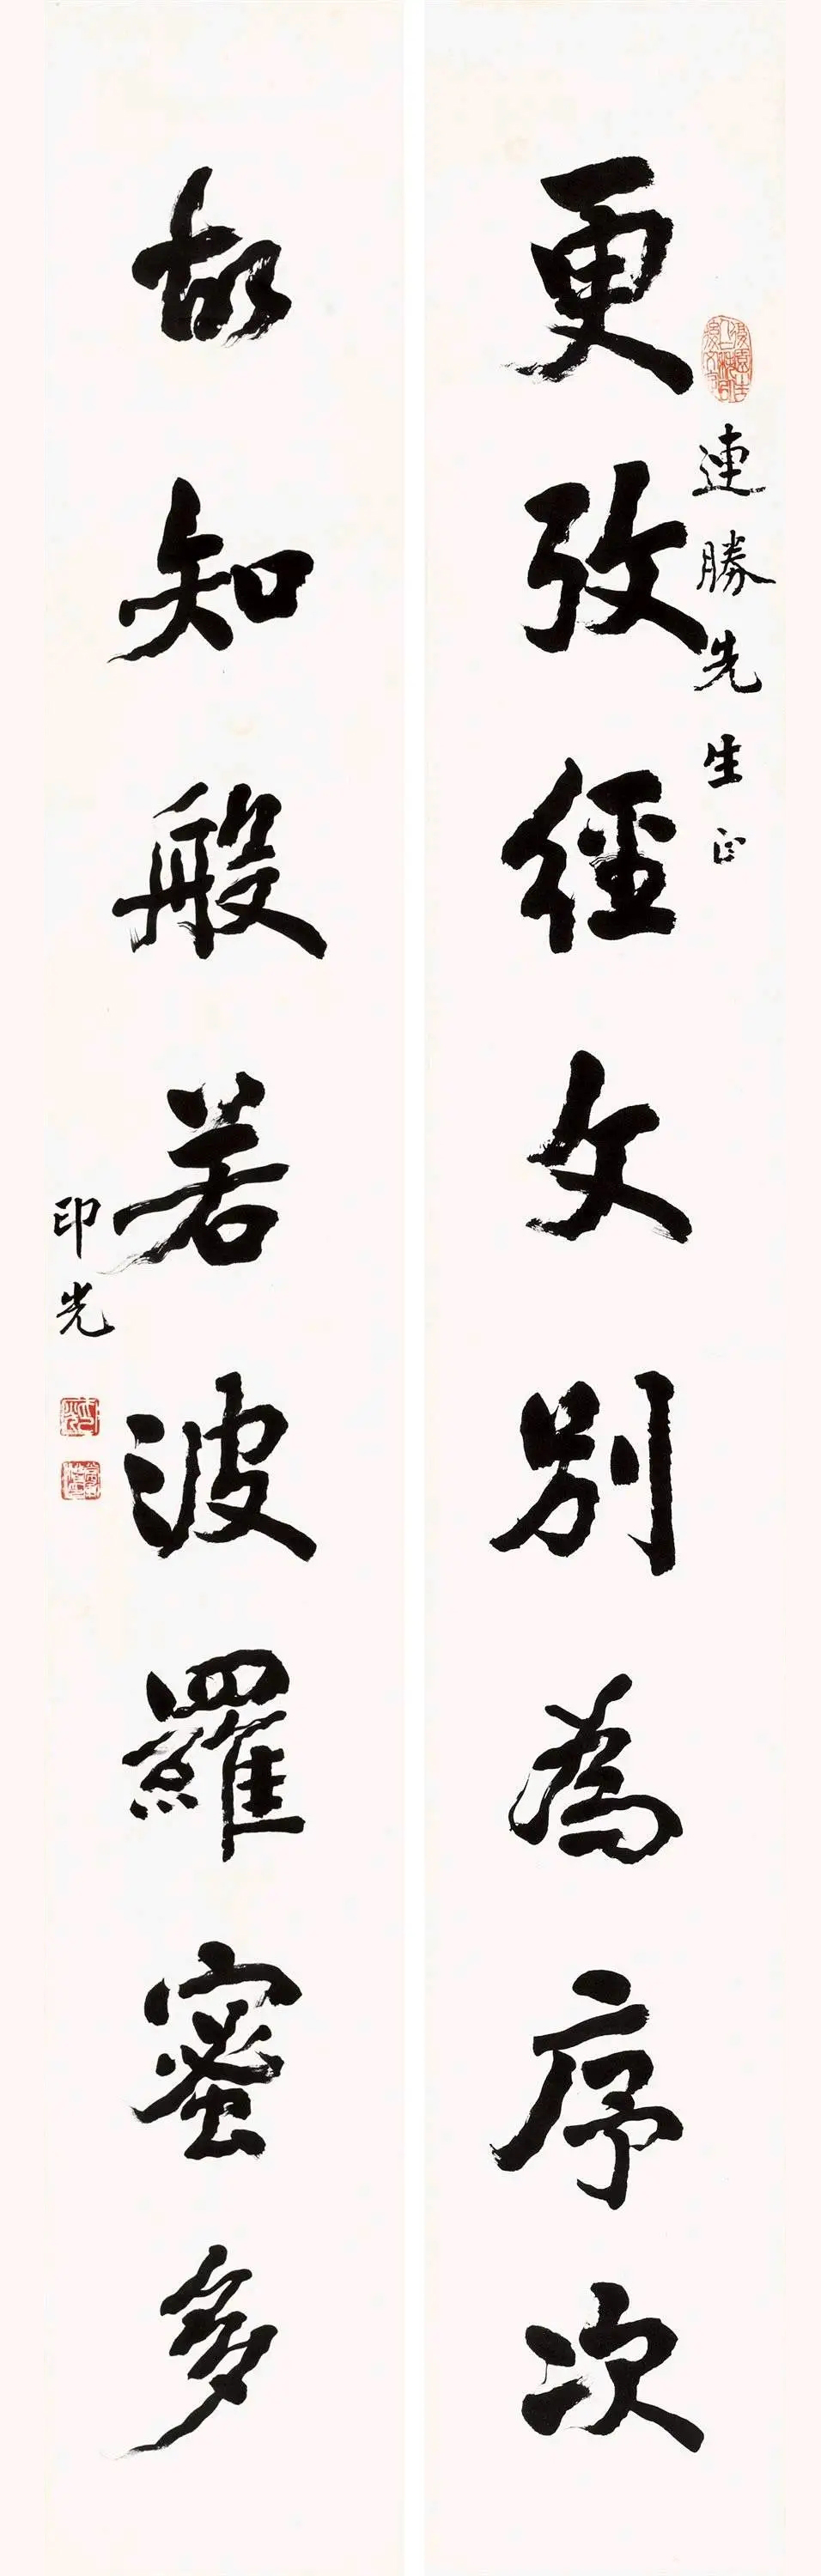 更攷經文別為序次
連勝先生正
故知般若波羅蜜多
印光